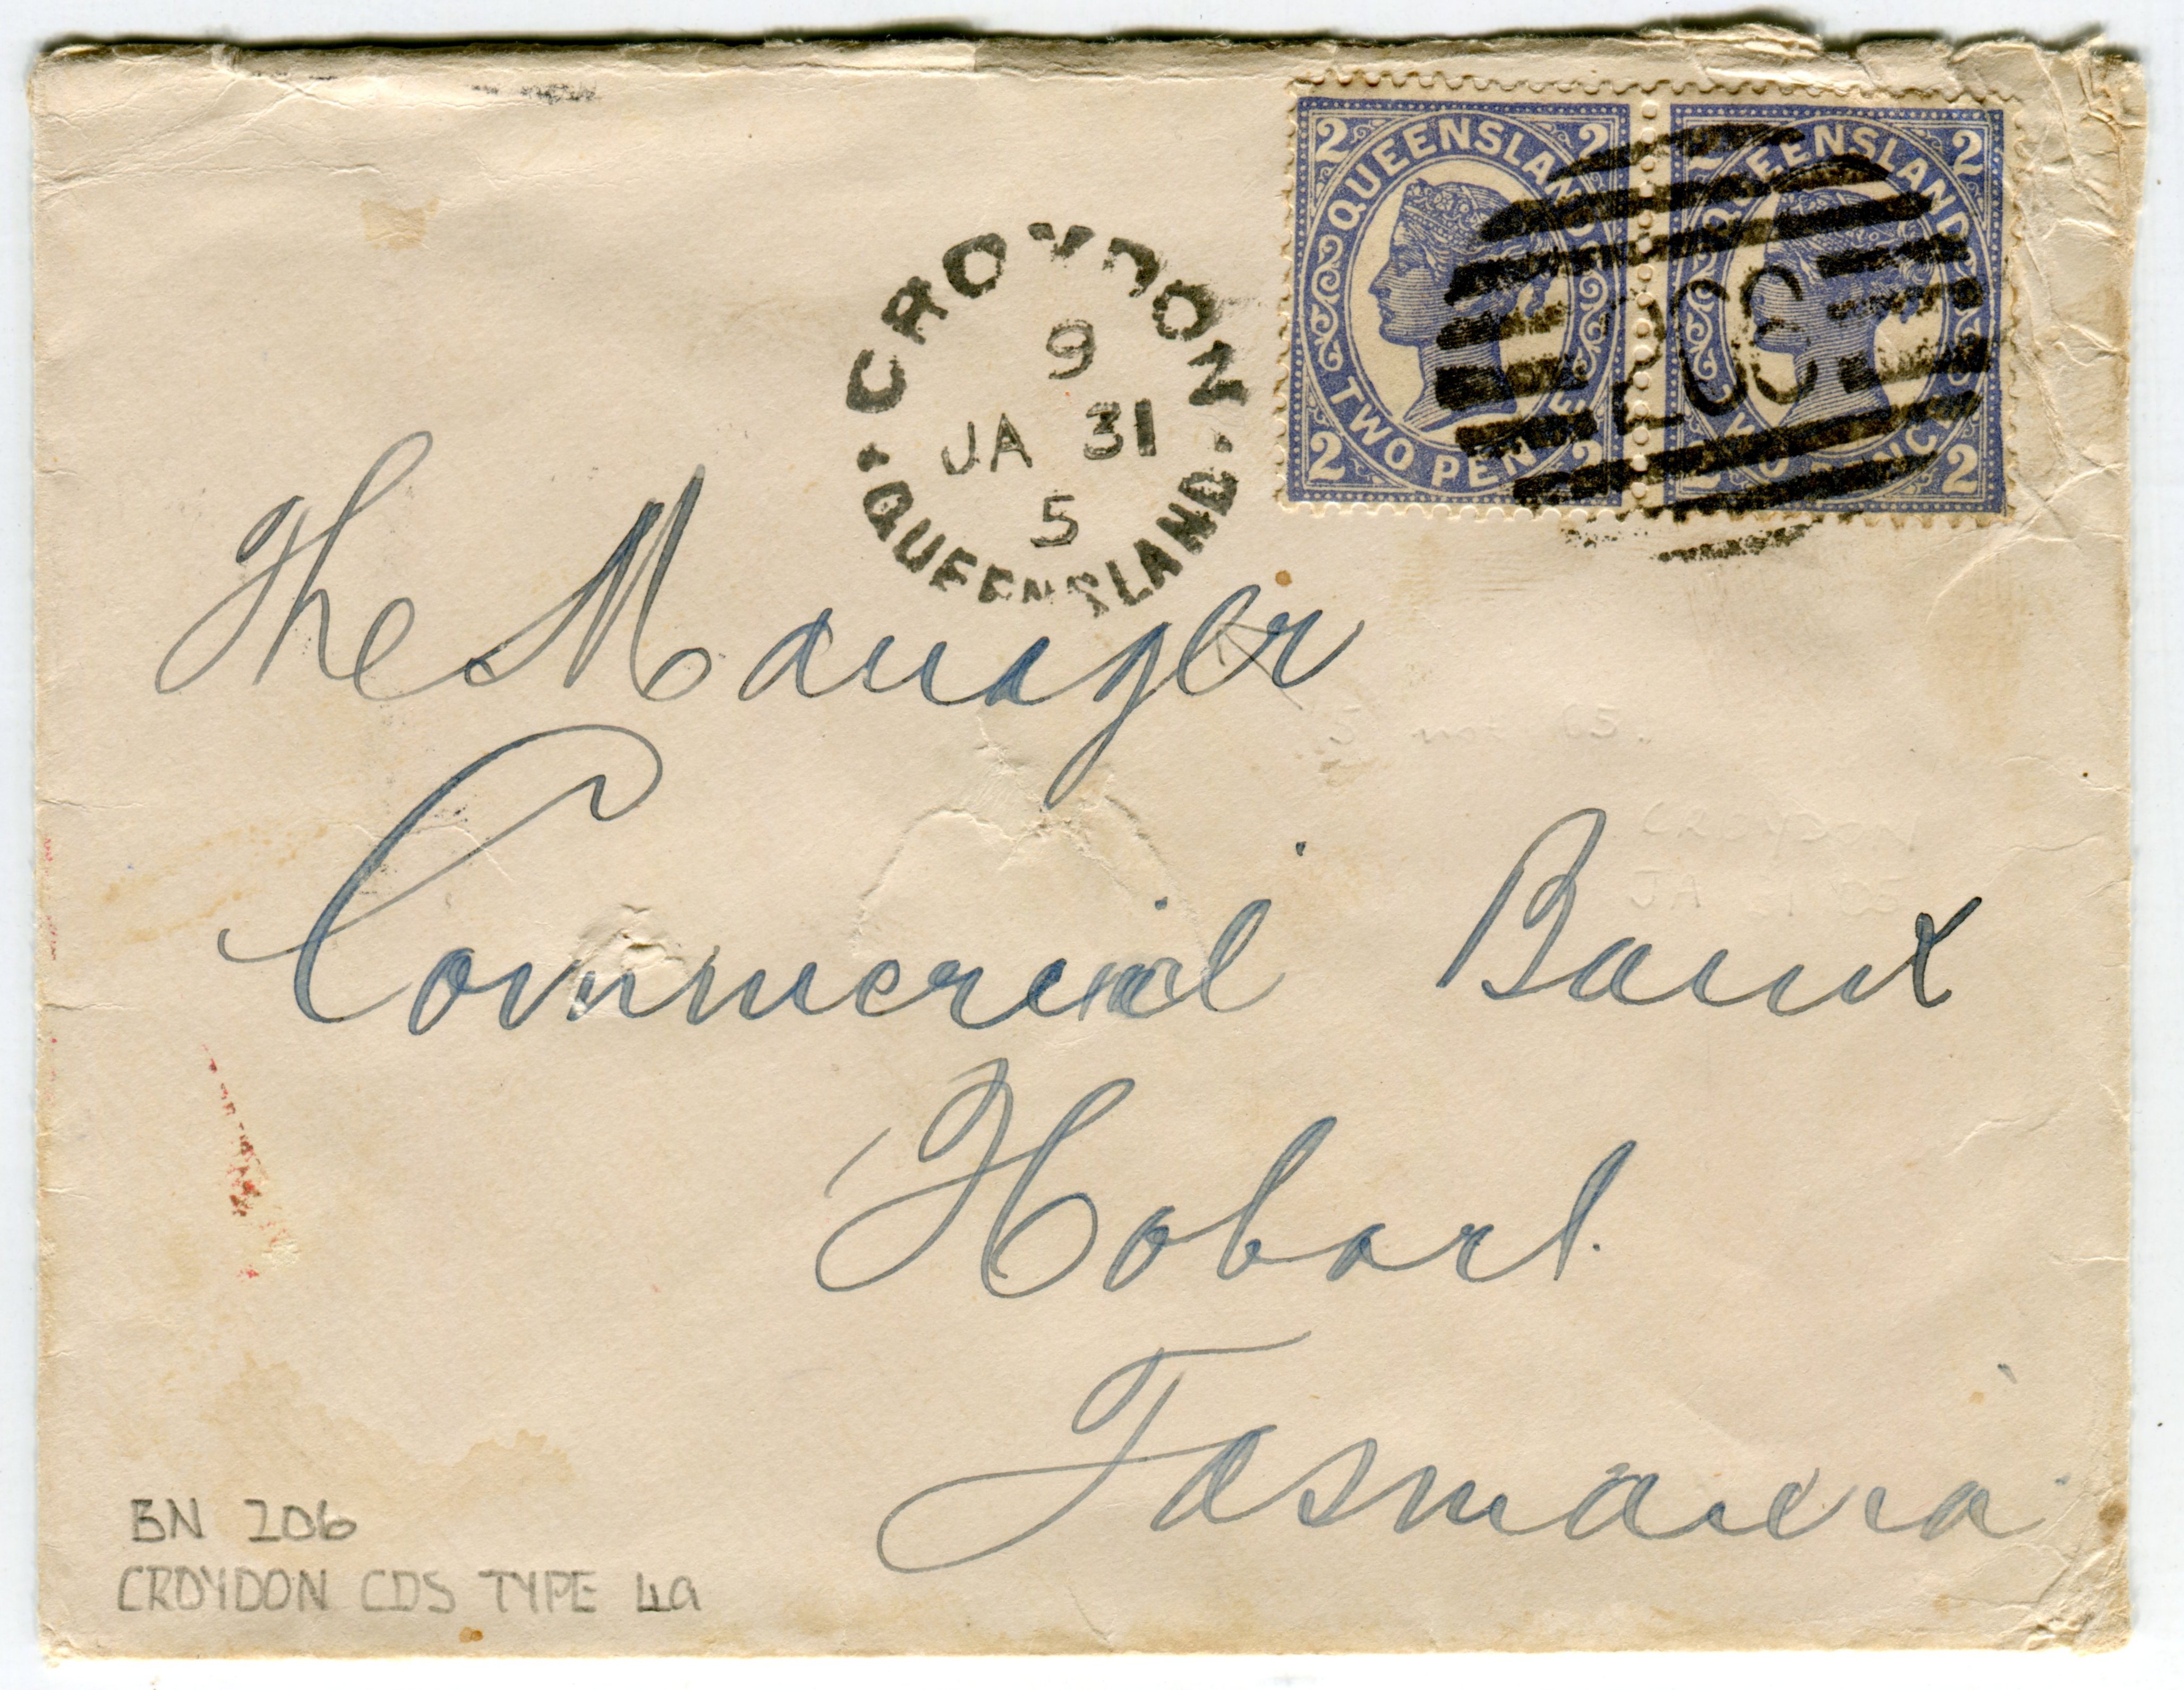 CROYDON
9
JA 31
5
QUEENSLAND
2 QUEENSLAND 2
TWO PENCE
2 2
QUEENSLAND 2
TWO PENCE
2 2
206
The Manager
Commercial Bank
Hobart.
Tasmania
BN 206
CROYDON CDS TYPE 4a